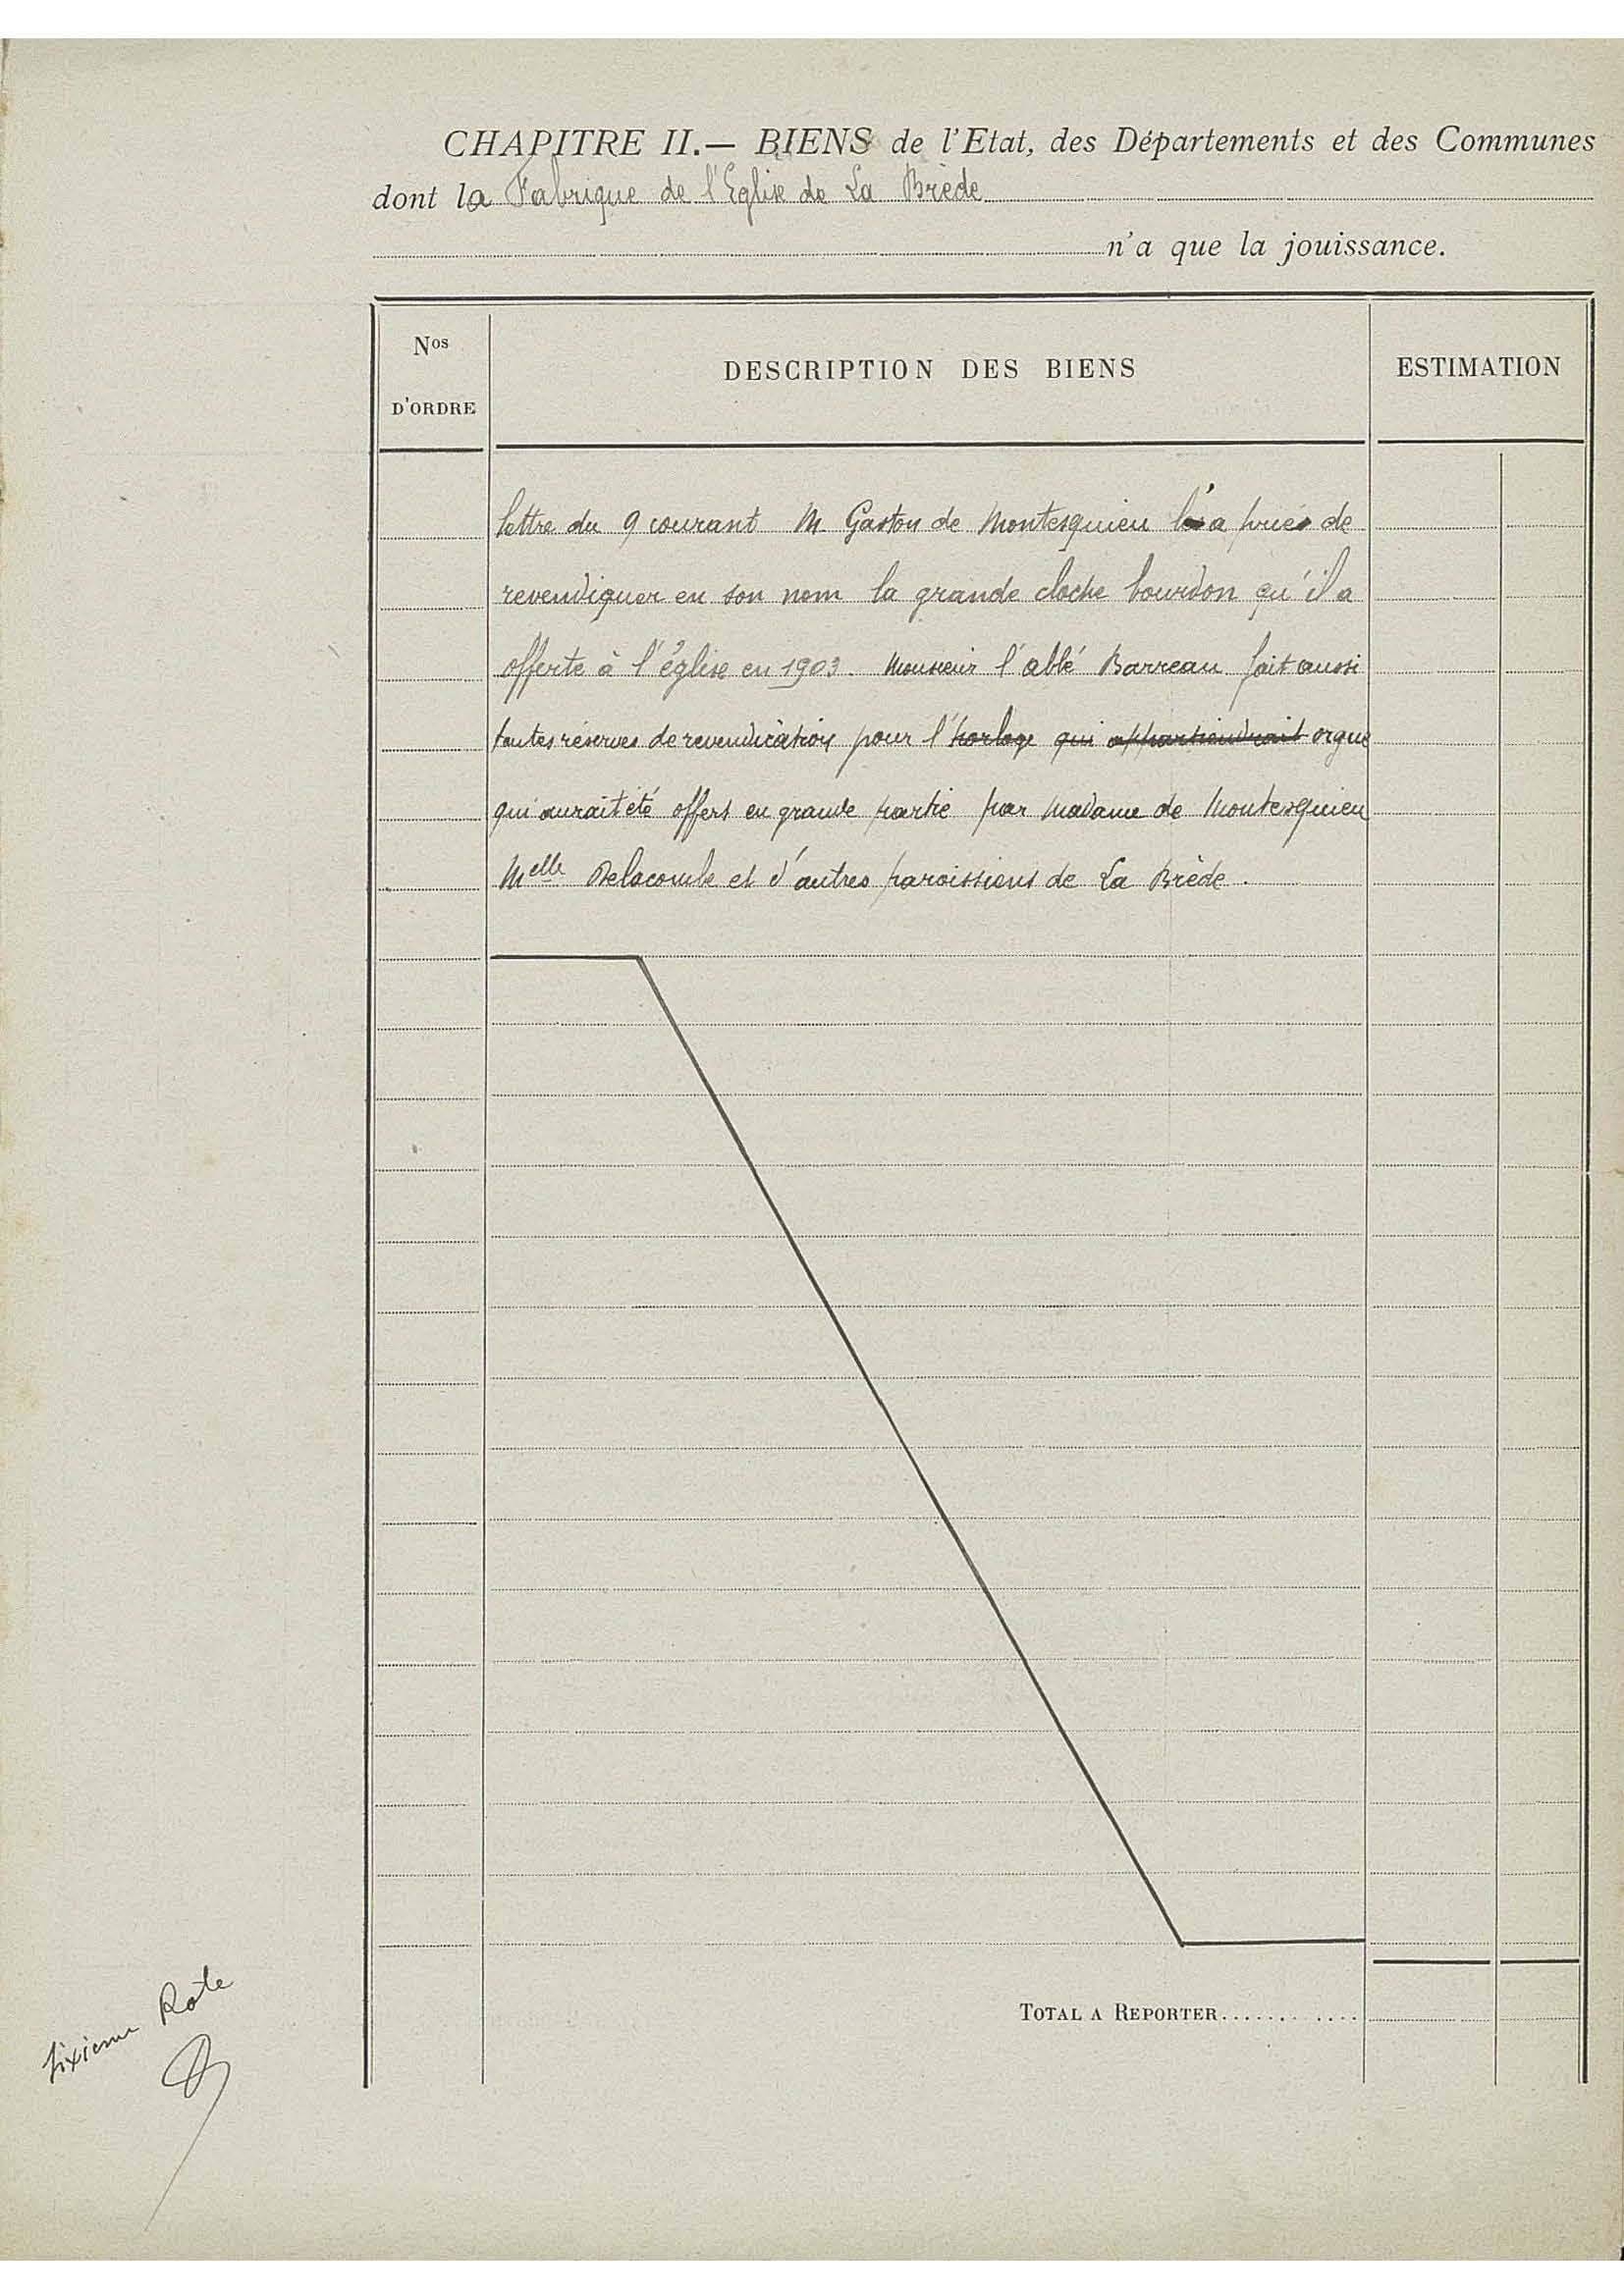 CHAPITRE II.— BIENS de l'Etat, des Départements et des Communes
dont la Fabrique de l'Eglise de La Brède
n'a que la jouissance.
Nos D'ORDRE
DESCRIPTION DES BIENS
ESTIMATION
lettre du 9 courant M. Gaston de Montesquieu l'a prié de
revendiquer en son nom la grande cloche bourdon qu'il a
offerte à l'église en 1903. Monsieur l'abbé Barreau fait aussi
toutes réserves de revendication pour l'horloge qui appartiendrait orgue
qui aurait été offert en grande partie par Madame de Montesquieu
Melle Delacombe et d'autres paroissiens de La Brède.
TOTAL A REPORTER...........
Sixième Rôle